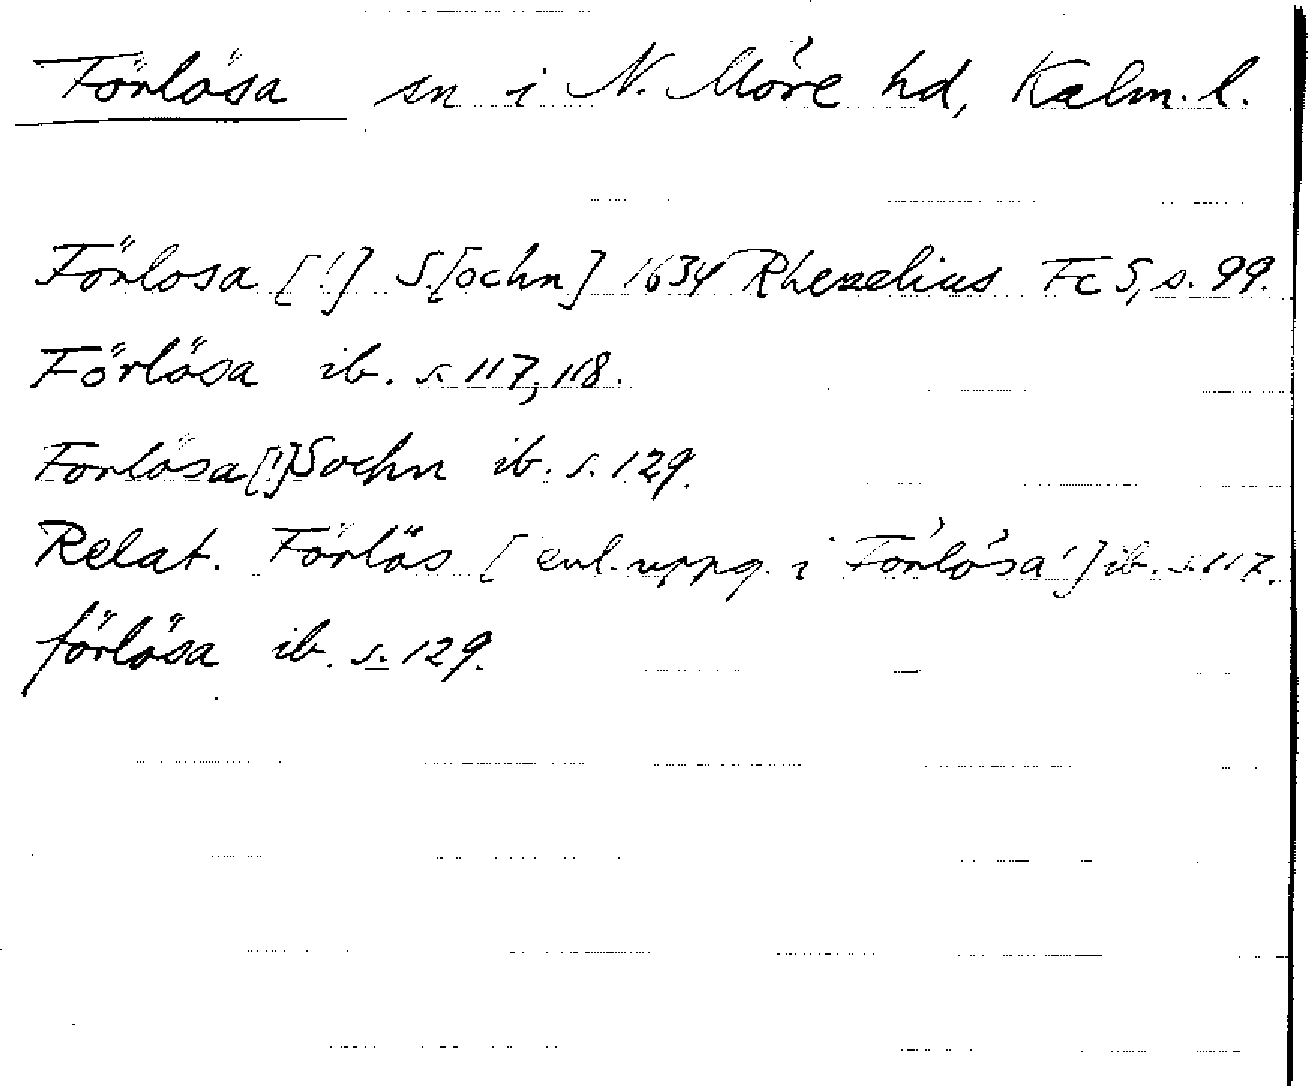 Förlösa sn i N. Möre hd, Kalm. l.
Förlosa [!] S.[ochn] 1634 Rhezelius Fc 5, s. 99.
Förlösa ib. s. 117, 118.
Forlösa [!] Sochn ib. s. 129.
Relat. Förlös [enl. uppg. i Förlösa!] ib. s. 117.
förlösa ib. s. 129.